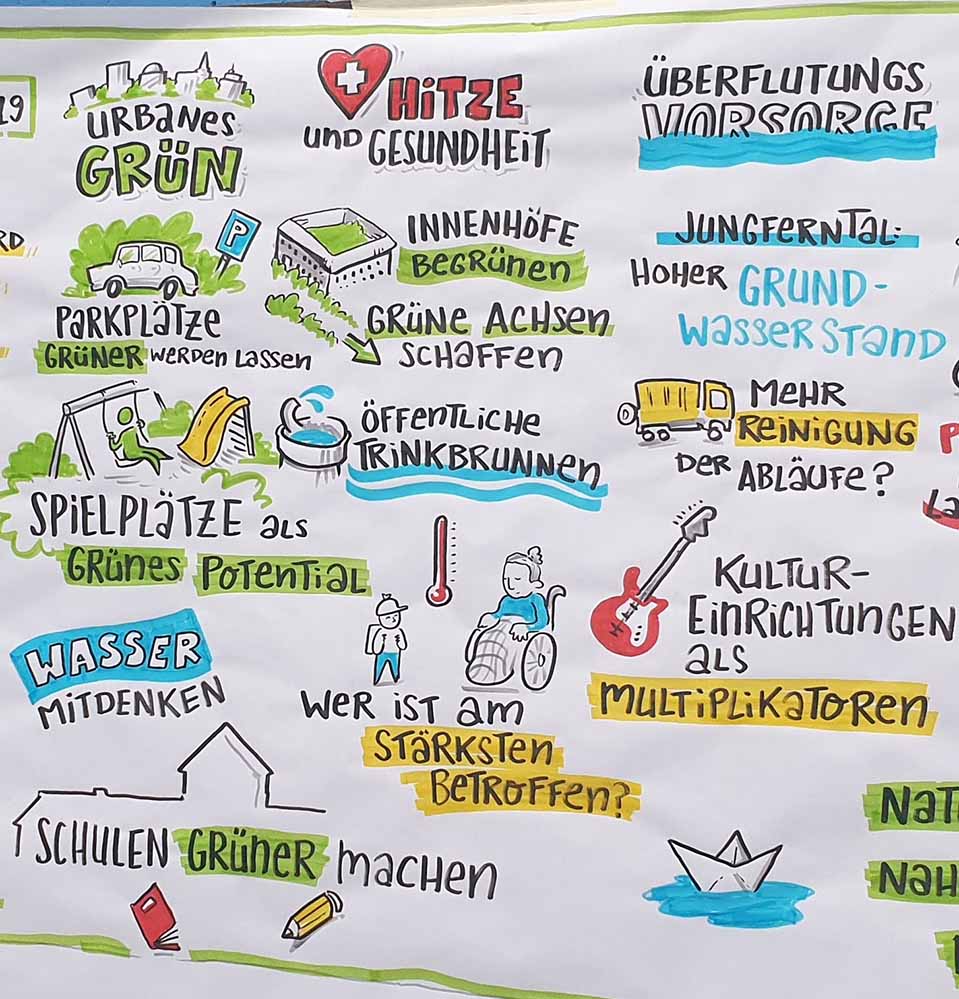 19
URBANES
GRÜN
PARKPLÄTZE
GRÜNER WERDEN LASSEN
SPIELPLÄTZE ALS
GRÜNES POTENTIAL
WASSER
MITDENKEN
SCHULEN GRÜNER MACHEN
HITZE
UND GESUNDHEIT
INNENHÖFE
BEGRÜNEN
GRÜNE ACHSEN
SCHAFFEN
ÖFFENTLICHE
TRINKBRUNNEN
WER IST AM
STÄRKSTEN
BETROFFEN?
ÜBERFLUTUNGS
VORSORGE
P
JUNGFERNTAL:
HOHER GRUND-
WASSERSTAND
MEHR
REINIGUNG
DER ABLÄUFE?
KULTUR-
EINRICHTUNGEN
ALS
MULTIPLIKATOREN
NAT
NAH